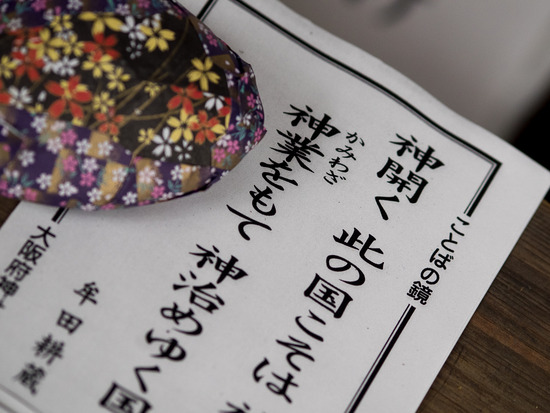 ことばの鏡
神開く 此の国こそは
かみわざ
神業をもて 神治めゆく国
牟田耕蔵
大阪府神